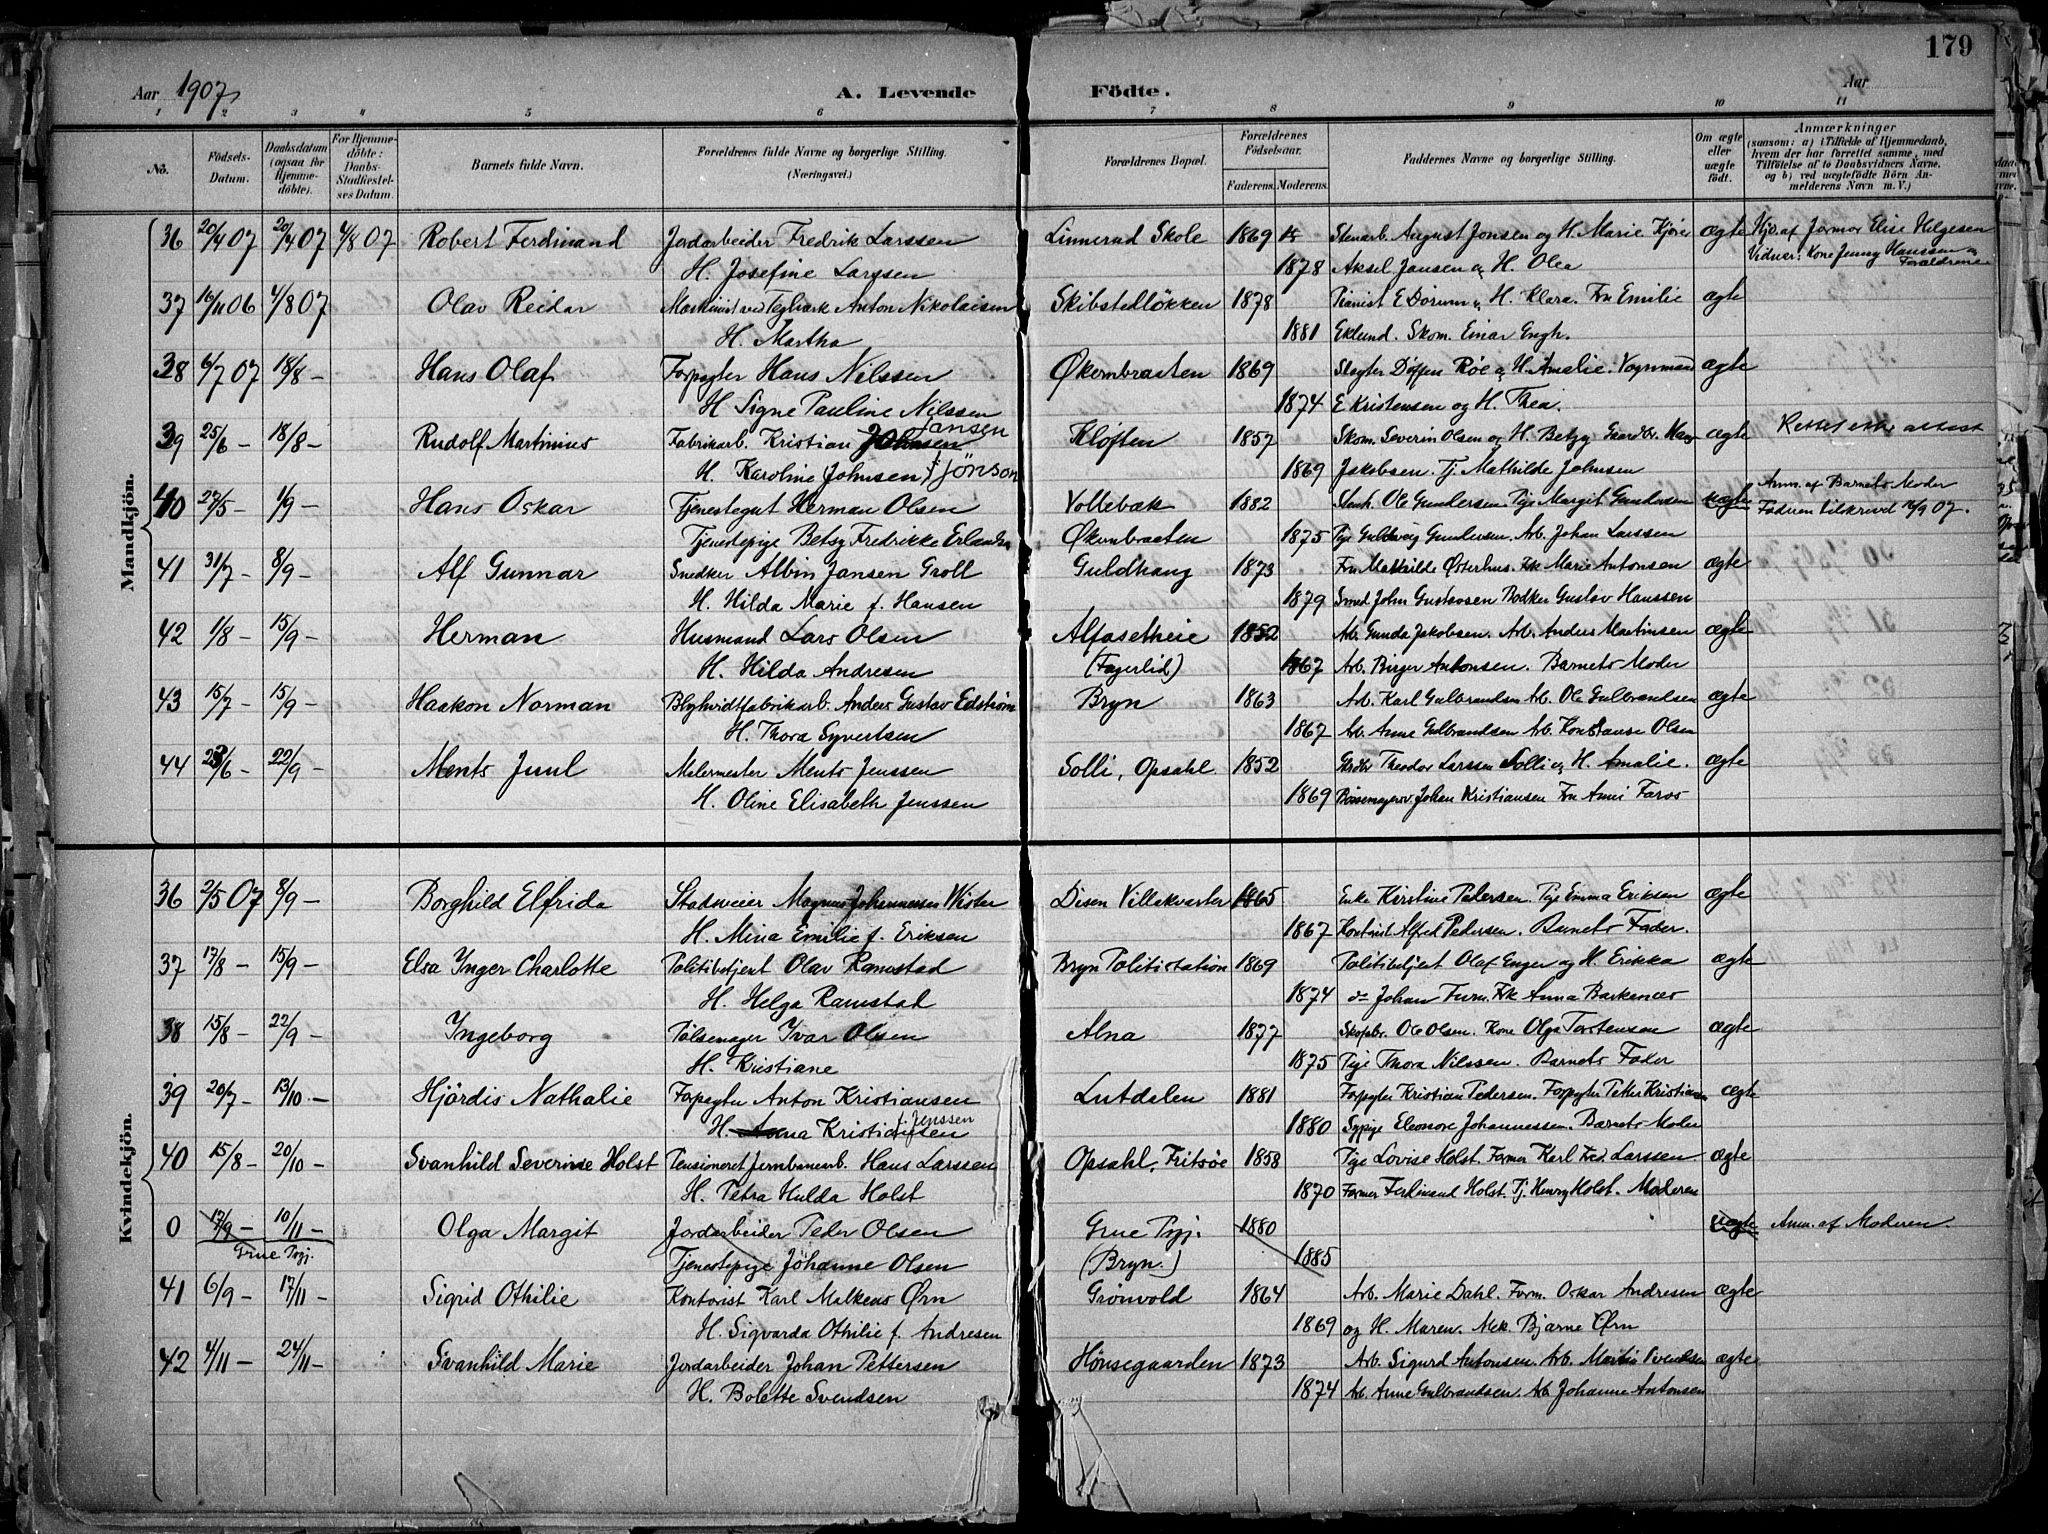 179
Aar 1907
A. Levende Födte.
Aar
1 2 3 4 5 6 7 8 9 10 11
No.
Födsels-Datum.
Daabsdatum (ogsaa for Hjemme-döbte).
For Hjemme-döbte: Daabs-Stadfæstelses Datum.
Barnets fulde Navn.
Forældrenes fulde Navne og borgerlige Stilling. (Næringsvei.)
Forældrenes Bopæl.
Forældrenes Födselsaar.
Faderens. Moderens.
Faddernes Navne og borgerlige Stilling.
Om ægte eller uægte födt.
Anmærkninger (saasom: a) i Tilfælde af Hjemmedaab, hvem der har forrettet samme, med Tilföielse af to Daabsvidners Navne. og b) ved uægtefödte Börn Anmelderens Navn m. V.)
Mandkjön.
36 20/4 07 20/4 07 4/8 07 Robert Ferdinand Jordarbeider Fredrik Larssen Linnerud Skole 1869 Stenarb. August Jonsen og H. Marie ægte Hjd. af Jormor Elise Helgesen
H. Josefine Larssen 1878 Aksel Jansen og H. Olea Vidner: Kone Jenny Hanssen og Forældrene
37 16/11 06 4/8 07 Olav Reidar Maskinist ved Teglværk Anton Nikolaisen Skibstedløkken 1878 Pianist E Dørum og H. Klara. Fru Emilie ægte
H. Martha 1881 Eklund. Skom. Einar Engh.
38 6/7 07 18/8 – Hans Olaf Forpagter Hans Nilssen Økernbraaten 1869 Slagter Røe og H. Amalie. Vognmand ægte
H. Signe Pauline Nilssen 1874 E Kristensen og H. Thea.
39 25/6 – 18/8 – Rudolf Martinius Fabrikarb. Kristian Johnsen Jansen Kløften 1857 Skom. Severin Olsen og H. Betzy Gaardbr. Hans ægte Rettet efter attest
H. Karoline (Johnsen) f. Jönson 1869 Jakobsen. Tj. Mathilde Johnsen
40 27/5 – 1/9 – Hans Oskar Tjenestegut Herman Olsen Vollebæk 1882 Stenh. Ole Gundersen. Pige Margit Gundersen uægte Anm. af Barnets Moder
Tjenestepige Betsy Fredrikke Økernbraaten 1875 Pige Gundersen. Arb. Johan Larssen Faderen tilskrevet 16/9 07.
41 31/7 – 8/9 – Alf Gunnar Snedker Albin Jansen Groll Guldhaug 1873 Fru Mathilde Østerhus. Frk Marie Antonsen ægte
H. Hilda Marie f. Hansen 1879 Smed John Gustavsen Bødker Gustav Hanssen
42 1/8 – 15/9 – Herman Husmand Lars Olsen Alfasetheie 1852 Arb. Gunda Jakobsen. Arb. Anders Martinsen ægte
H. Hilda Andresen (Fagerlid) 1867 Arb. Birger Antonsen. Barnets Moder
43 15/7 – 15/9 – Haakon Norman Blyhvidtfabrikarb. Anders Gustav Edstrøm Bryn 1863 Arb. Karl Gulbrandsen Arb. Ole Gulbrandsen ægte
H. Thora Syvertsen 1867 Arb. Anne Gulbrandsen Arb. Konstanse Olsen
44 23/6 – 22/9 – Ments Juul Malermester Ments Jenssen Solli, Opsahl 1852 Theodor Larssen Solli og H. Amalie. ægte
H. Oline Elisabeth Jenssen 1869 Bøssemagersv. Johan Kristiansen Fru Anni Faros
Kvindekjön.
36 2/5 07 8/9 – Borghild Elfrida Stadsveier Magnus Johannessen Wister Disen Villakvarter 1865 Enke Kirstine Pedersen. Pige Emma Eriksen ægte
H. Mina Emilie f. Eriksen 1867 Kontorist Alfred Pedersen. Barnets Fader.
37 17/8 – 15/9 – Elsa Ynger Charlotte Politibetjent Olav Ramstad Bryn Politistation 1869 Politibetjent Olaf Enger og H. Erikka ægte
H. Helga Ramstad 1874 do Johan Furu. Frk Anna Barkenæs
38 15/8 – 22/9 – Yngeborg Pølsemager Yvar Olsen Alna 1877 Skofabr. Ole Olsen. Kone Olga Torstensen ægte
H. Kristiane 1875 Pige Thora Nilssen. Barnets Fader
39 20/7 – 13/10 – Hjördis Nathalie Forpagter Anton Kristiansen Lutdalen 1881 Forpagter Kristian Pedersen. Forpagter Petter Kristiansen ægte
H. Anna Kristiansen f. Jenssen 1880 Sypige Eleonore Johannessen. Barnets Moder
40 15/8 – 20/10 – Svanhild Severine Holst Pensioneret Jernbanearb. Hans Larssen Opsahl, Fritsøe 1858 Pige Lovise Holst. Former Karl Fred. Larssen. ægte
H. Petra Hulda Holst 1870 Former Ferdinand Holst. Tj. Henry Holst. Moderen
0 17/9 – 10/11 – Olga Margit Jordarbeider Peder Olsen Grue Prgj. 1880 uægte Anm. af Moderen.
Grue Prgj. Tjenestepige Johanne Olsen (Bryn.) 1885
41 6/9 – 17/11 – Sigrid Othilie Kontorist Karl Malkens Ørn Grönvold 1864 Arb. Marie Dahl. Form. Oskar Andresen ægte
H. Sigvarda Othilie f. Andresen 1869 og H. Maren. Mek. Bjarne Ørn
42 4/11 – 24/11 – Svanhild Marie Jordarbeider Johan Pettersen Hönsegaarden 1873 Arb. Sigurd Antonsen. Arb. Svendsen ægte
H. Bolette Svendsen 1874 Arb. Anne Gulbrandsen. Arb Johanne Antonsen